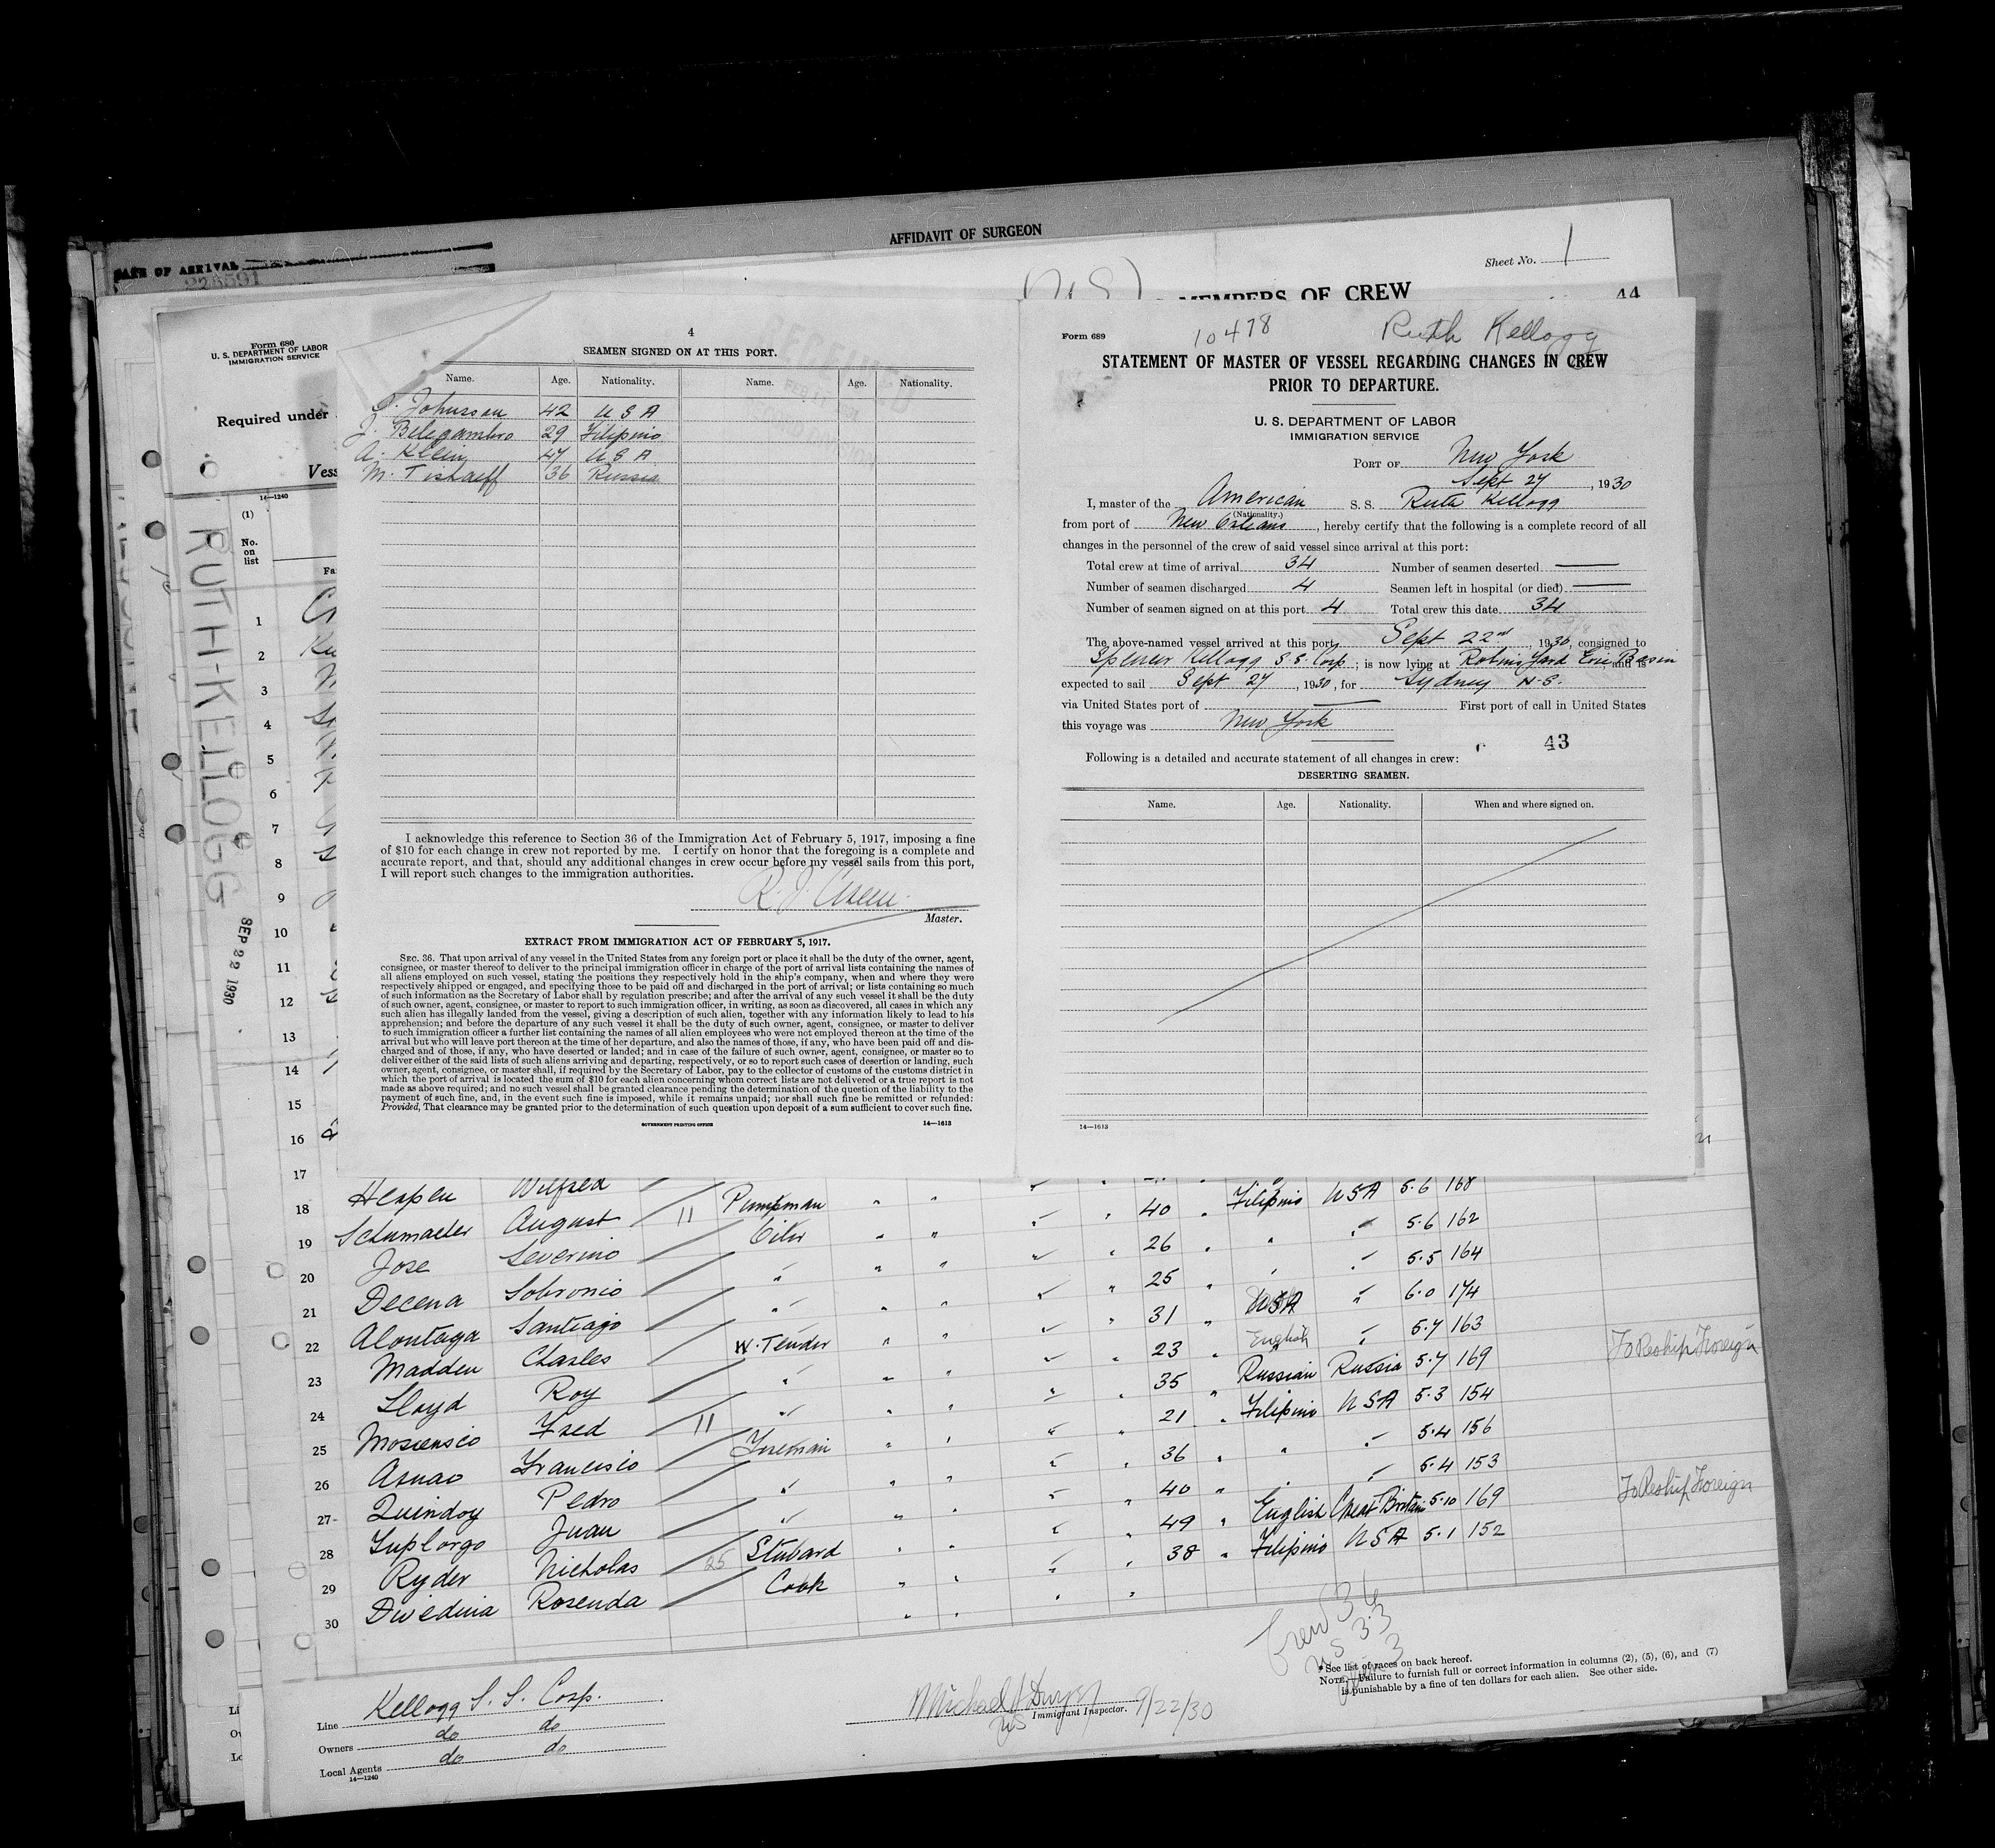 AFFIDAVIT OF SURGEON
DATE OF ARRIVAL
Sheet No. 1
MEMBERS OF CREW
44
Form 680
U. S. DEPARTMENT OF LABOR
IMMIGRATION SERVICE
Required under
Vess
14—1240
(1)
No.
on
list
Fa
RUTH-KELLOGG
SEP 22 1930
4
SEAMEN SIGNED ON AT THIS PORT.
Name. Age. Nationality. Name. Age. Nationality.
Johnson 42 USA
J. Belegambro 29 Filipino
A. Klein 47 USA
M. Tishaeff 36 Russia
I acknowledge this reference to Section 36 of the Immigration Act of February 5, 1917, imposing a fine
of $10 for each change in crew not reported by me. I certify on honor that the foregoing is a complete and
accurate report, and that, should any additional changes in crew occur before my vessel sails from this port,
I will report such changes to the immigration authorities.
R. J.
Master.
EXTRACT FROM IMMIGRATION ACT OF FEBRUARY 5, 1917.
SEC. 36. That upon arrival of any vessel in the United States from any foreign port or place it shall be the duty of the owner, agent,
consignee, or master thereof to deliver to the principal immigration officer in charge of the port of arrival lists containing the names of
all aliens employed on such vessel, stating the positions they respectively hold in the ship's company, when and where they were
respectively shipped or engaged, and specifying those to be paid off and discharged in the port of arrival; or lists containing so much
of such information as the Secretary of Labor shall by regulation prescribe; and after the arrival of any such vessel it shall be the duty
of such owner, agent, consignee, or master to report to such immigration officer, in writing, as soon as discovered, all cases in which any
such alien has illegally landed from the vessel, giving a description of such alien, together with any information likely to lead to his
apprehension; and before the departure of any such vessel it shall be the duty of such owner, agent, consignee, or master to deliver
to such immigration officer a further list containing the names of all alien employees who were not employed thereon at the time of the
arrival but who will leave port thereon at the time of her departure, and also the names of those, if any, who have been paid off and dis-
charged and of those, if any, who have deserted or landed; and in case of the failure of such owner, agent, consignee, or master so to
deliver either of the said lists of such aliens arriving and departing, respectively, or so to report such cases of desertion or landing, such
owner, agent, consignee, or master shall, if required by the Secretary of Labor, pay to the collector of customs of the customs district in
which the port of arrival is located the sum of $10 for each alien concerning whom correct lists are not delivered or a true report is not
made as above required; and no such vessel shall be granted clearance pending the determination of the question of the liability to the
payment of such fine, and, in the event such fine is imposed, while it remains unpaid; nor shall such fine be remitted or refunded:
Provided, That clearance may be granted prior to the determination of such question upon deposit of a sum sufficient to cover such fine.
GOVERNMENT PRINTING OFFICE 14—1613
Form 689 10478 Ruth Kellogg
STATEMENT OF MASTER OF VESSEL REGARDING CHANGES IN CREW
PRIOR TO DEPARTURE.
U. S. DEPARTMENT OF LABOR
IMMIGRATION SERVICE
PORT OF New York
Sept 27, 1930
I, master of the American S. S. Ruth Kellogg
(Nationality.)
from port of New Orleans, hereby certify that the following is a complete record of all
changes in the personnel of the crew of said vessel since arrival at this port:
Total crew at time of arrival 34 Number of seamen deserted —
Number of seamen discharged 4 Seamen left in hospital (or died) —
Number of seamen signed on at this port 4 Total crew this date 34
The above-named vessel arrived at this port Sept 22nd, 1930, consigned to
Spencer Kellogg S. S. Corp; is now lying at Robins Yard Erie Basin and is
expected to sail Sept 27, 1930, for Sydney N. S.
via United States port of — First port of call in United States
this voyage was New York
43
Following is a detailed and accurate statement of all changes in crew:
DESERTING SEAMEN.
Name. Age. Nationality. When and where signed on.
14—1613
1
2
3
4
5
6
7
8
9
10
11
12
13
14
15
16
17
18 Hespen Wilfred 11 Pumpman 40 Filipino USA 5.6 168
19 Schumacher August Oiler 26 " " 5.6 162
20 Jose Severino " 25 " " 5.5 164
21 Decena Sobronio " 31 USA " 6.0 174
22 Alontaga Santiago W. Tender 23 English " 5.7 163
23 Madden Charles " 35 Russian Russia 5.7 169 To Reship Foreign
24 Lloyd Roy " 21 Filipino USA 5.3 154
25 Fred 11 Fireman 36 " " 5.4 156
26 Asnao Francisco " 40 " " 5.4 153
27 Quindoy Pedro " 49 English Great Britain 5.10 169 To Reship Foreign
28 Juplorgo Juan Steward 38 Filipino USA 5.1 152
29 Ryder Nicholas 25 Cook
30 Divedina Rosenda
Crew 36
US 33
3
*See list of races on back hereof.
NOTE.—Failure to furnish full or correct information in columns (2), (5), (6), and (7)
is punishable by a fine of ten dollars for each alien. See other side.
Line Kellogg S. S. Corp.
Owners do do
Local Agents do do
14—1240
Michael J Dwyer 9/22/30
US Immigrant Inspector.